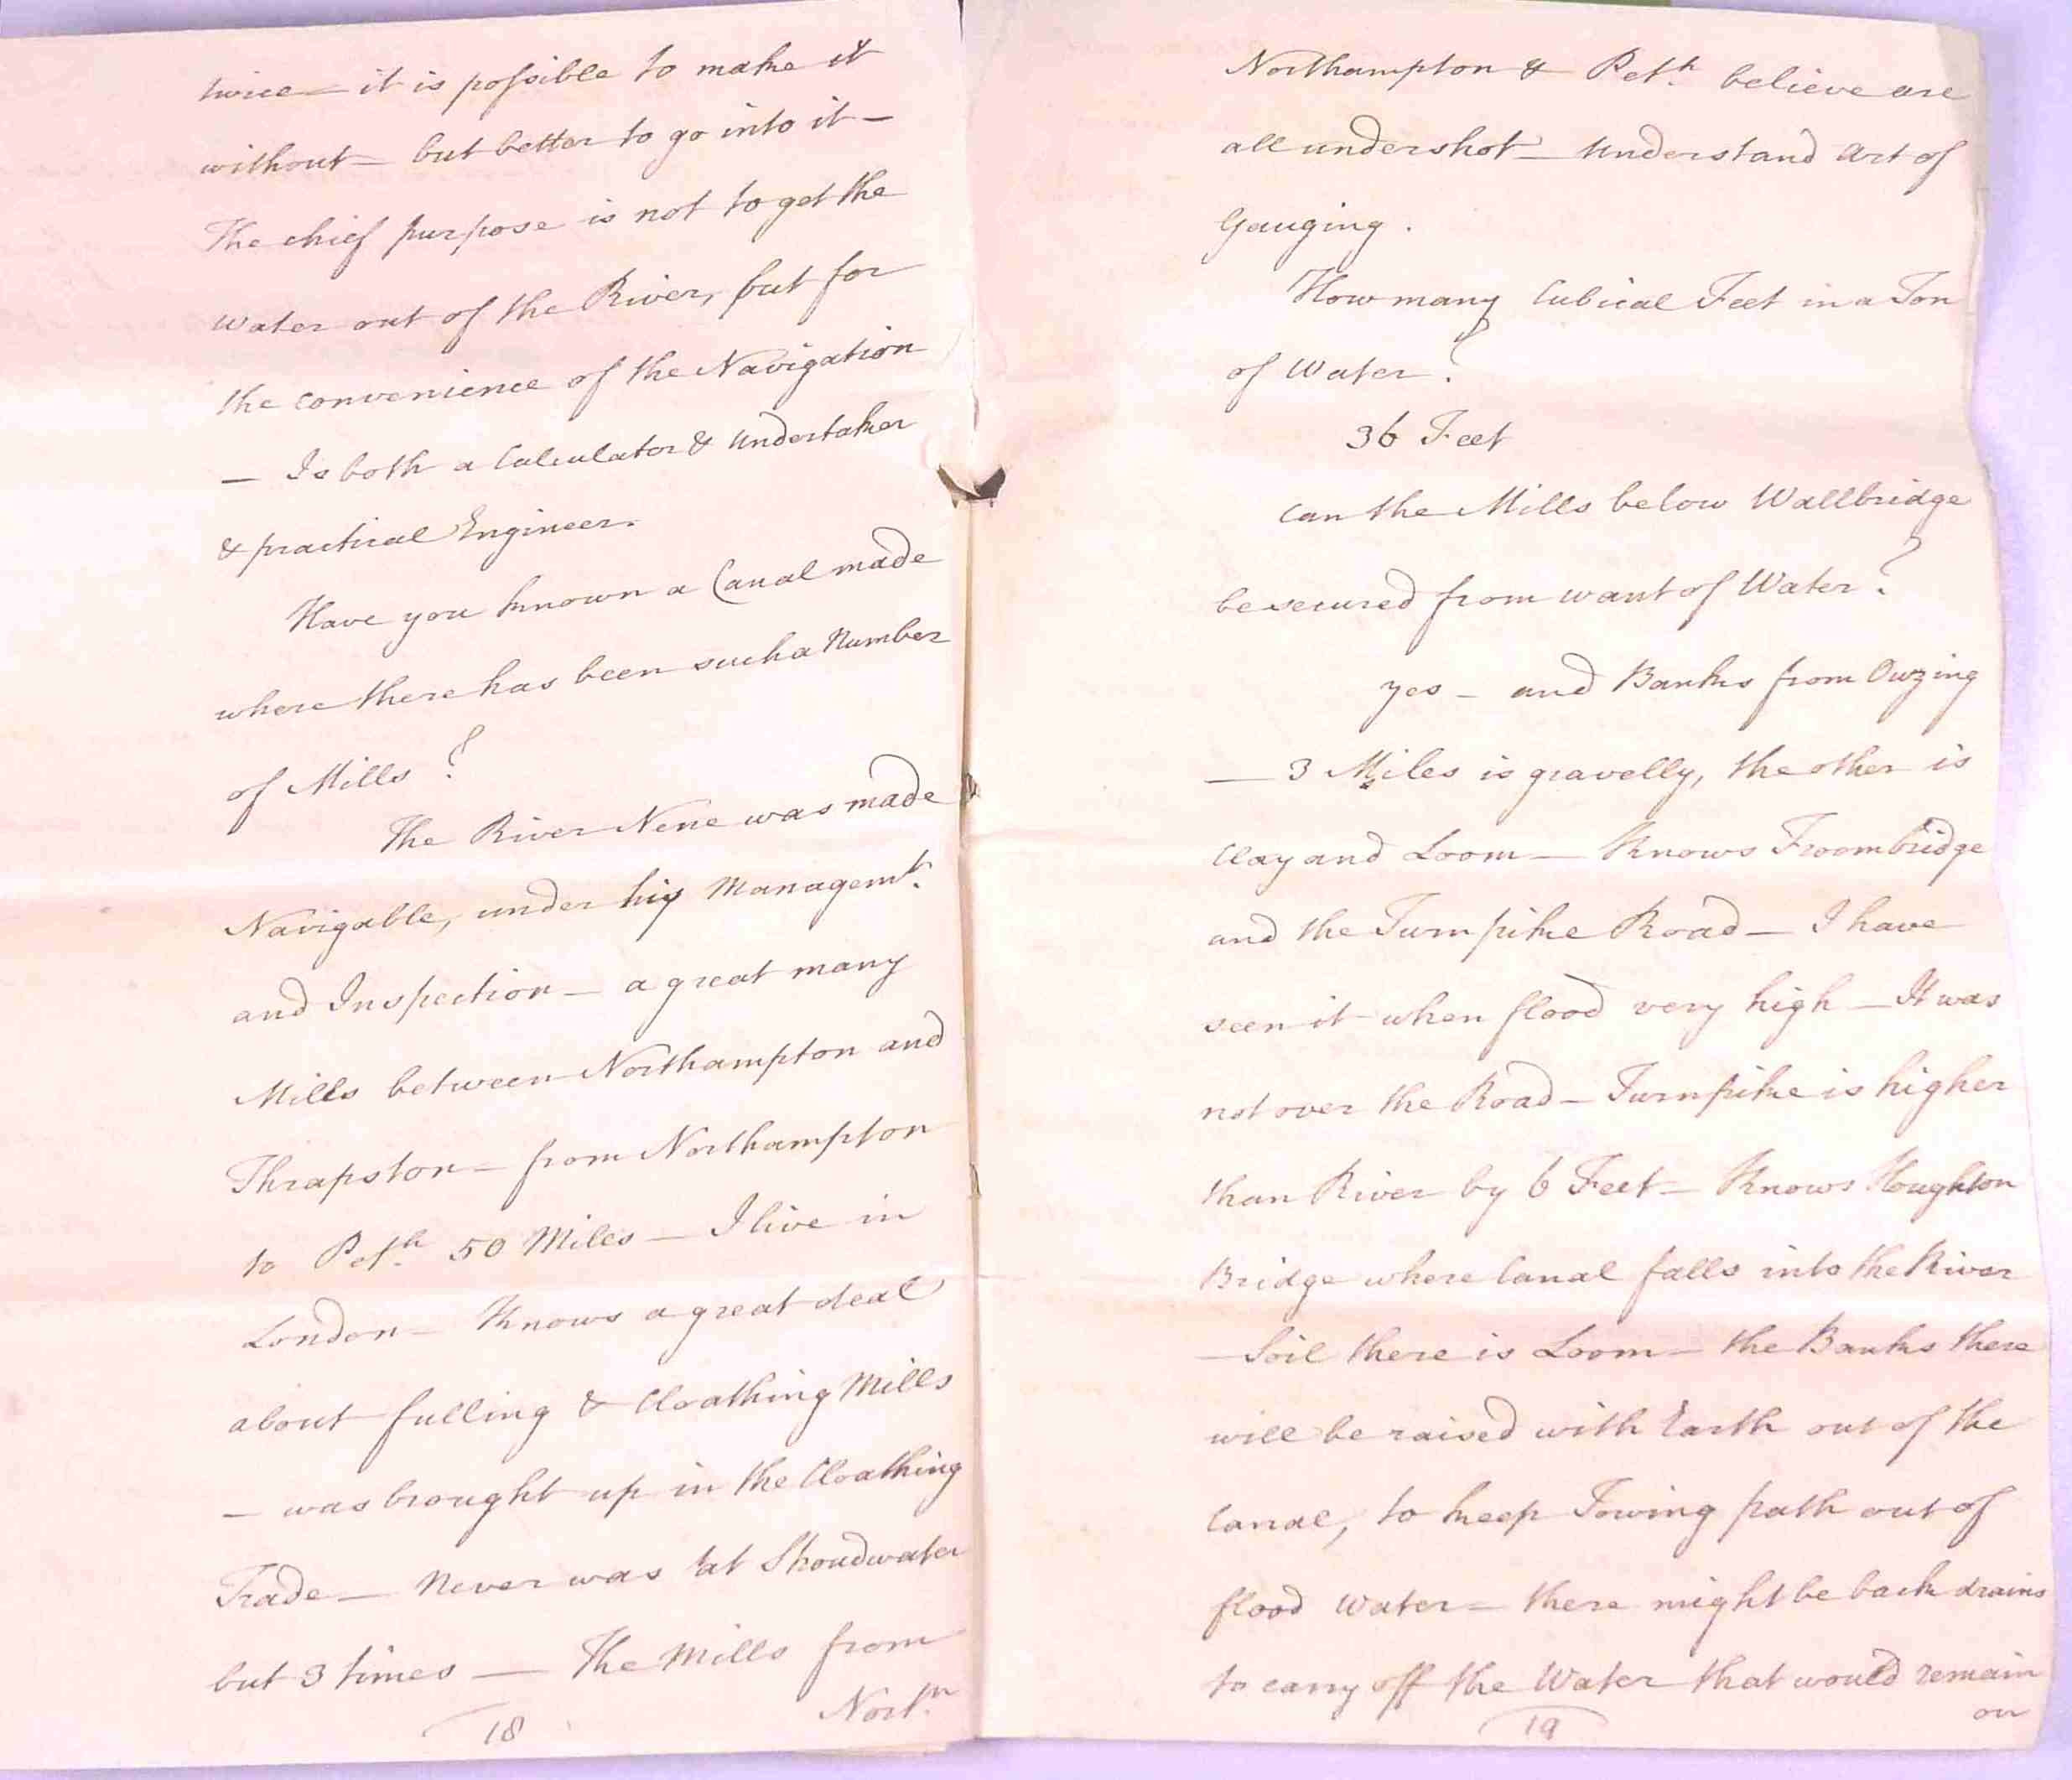 twice – it is possible to make it
without – but better to go into it –
The chief purpose is not to get the
water out of the River, but for
the convenience of the Navigation
– Is both a Calculator & Undertaker
& practical Engineer.
Have you known a Canal made
where there has been such a Number
of Mills?
The River Nene was made
Navigable, under his Managemt.
and Inspection – a great many
Mills between Northampton and
Thrapston – from Northampton
to Peth. 50 Miles – I live in
London – Knows a great deal
about fulling & Cloathing Mills
– was brought up in the Cloathing
Trade – Never was at Stroudwater
but 3 times – The Mills from
Northn.
18
Northampton & Peth. believe are
all undershot – Understand Art of
Gauging.
How many Cubical Feet in a Ton
of Water?
36 Feet
Can the Mills below Wallbridge
be secured from want of Water?
yes – and Banks from Owzing
– 3 Miles is gravelly, the other is
Clay and Loom – Knows Froombridge
and the Turnpike Road – I have
seen it when flood very high – It was
not over the Road – Turnpike is higher
than River by 6 Feet – Knows Houghton
Bridge where Canal falls into the River
– Soil there is Loom – the Banks there
will be raised with Earth out of the
Canal, to keep Towing path out of
flood Water – there might be back drains
to carry off the Water that would remain
on
19